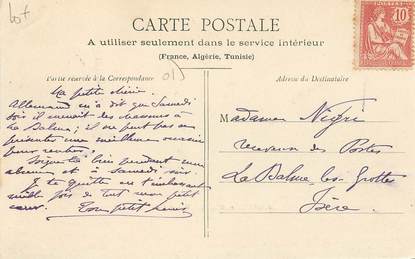 Lot
CARTE POSTALE
A utiliser seulement dans le service intérieur
(France, Algérie, Tunisie)
Partie réservée à la Correspondance
Adresse du Destinataire
POSTES
10
01
Ma petite chérie.
Allemand m'a dit que Samedi
soir il venait des maçons à
La Balme; il ne peut pas se
présenter une meilleure occasion
pour rentrer.
Soigne-toi bien pendant mon
absence et à samedi soir.
Je te quitte en t'embrassant
mille fois de tout mon petit
cœur. Ton petit Louis
Madame Nigri
Receveuse des Postes
La Balme-les-Grottes
Isère